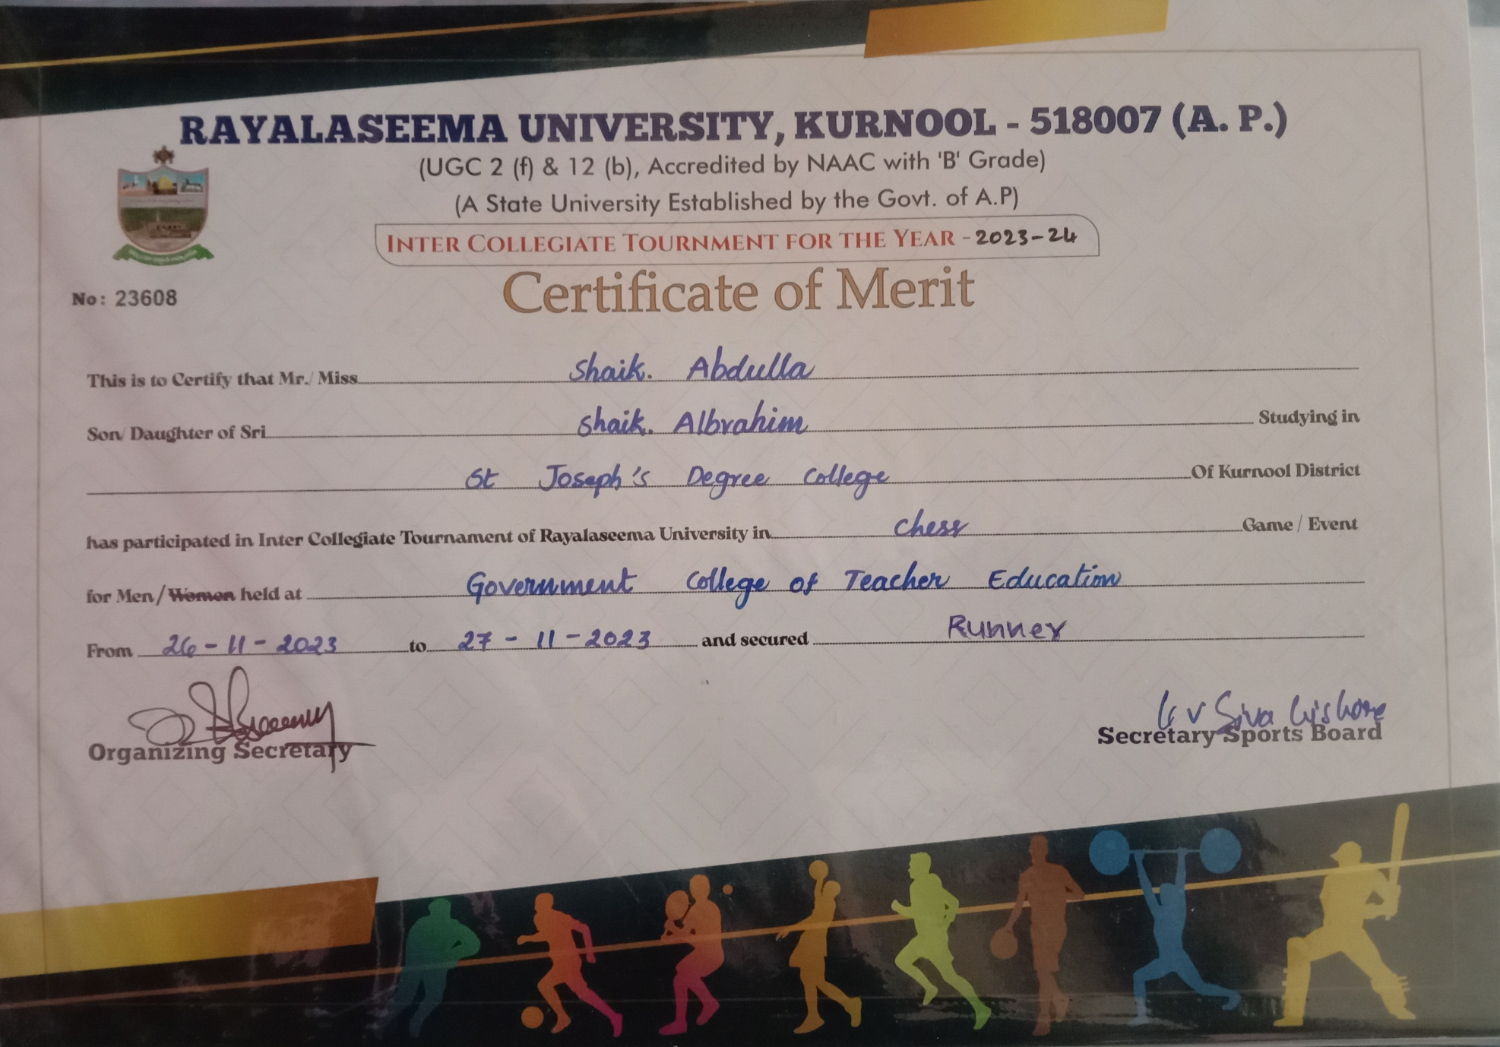 RAYALASEEMA UNIVERSITY, KURNOOL - 518007 (A. P.)
(UGC 2 (f) & 12 (b), Accredited by NAAC with 'B' Grade)
(A State University Established by the Govt. of A.P)
INTER COLLEGIATE TOURNMENT FOR THE YEAR - 2023-24
Certificate of Merit
No: 23608
This is to Certify that Mr./ Miss Shaik. Abdulla
Son/ Daughter of Sri Shaik. Albrahim Studying in
St Joseph's Degree College Of Kurnool District
has participated in Inter Collegiate Tournament of Rayalaseema University in Chess Game / Event
for Men/ Women held at Government College of Teacher Education
From 26-11-2023 to 27-11-2023 and secured Runner
Organizing Secretary
Secretary Sports Board